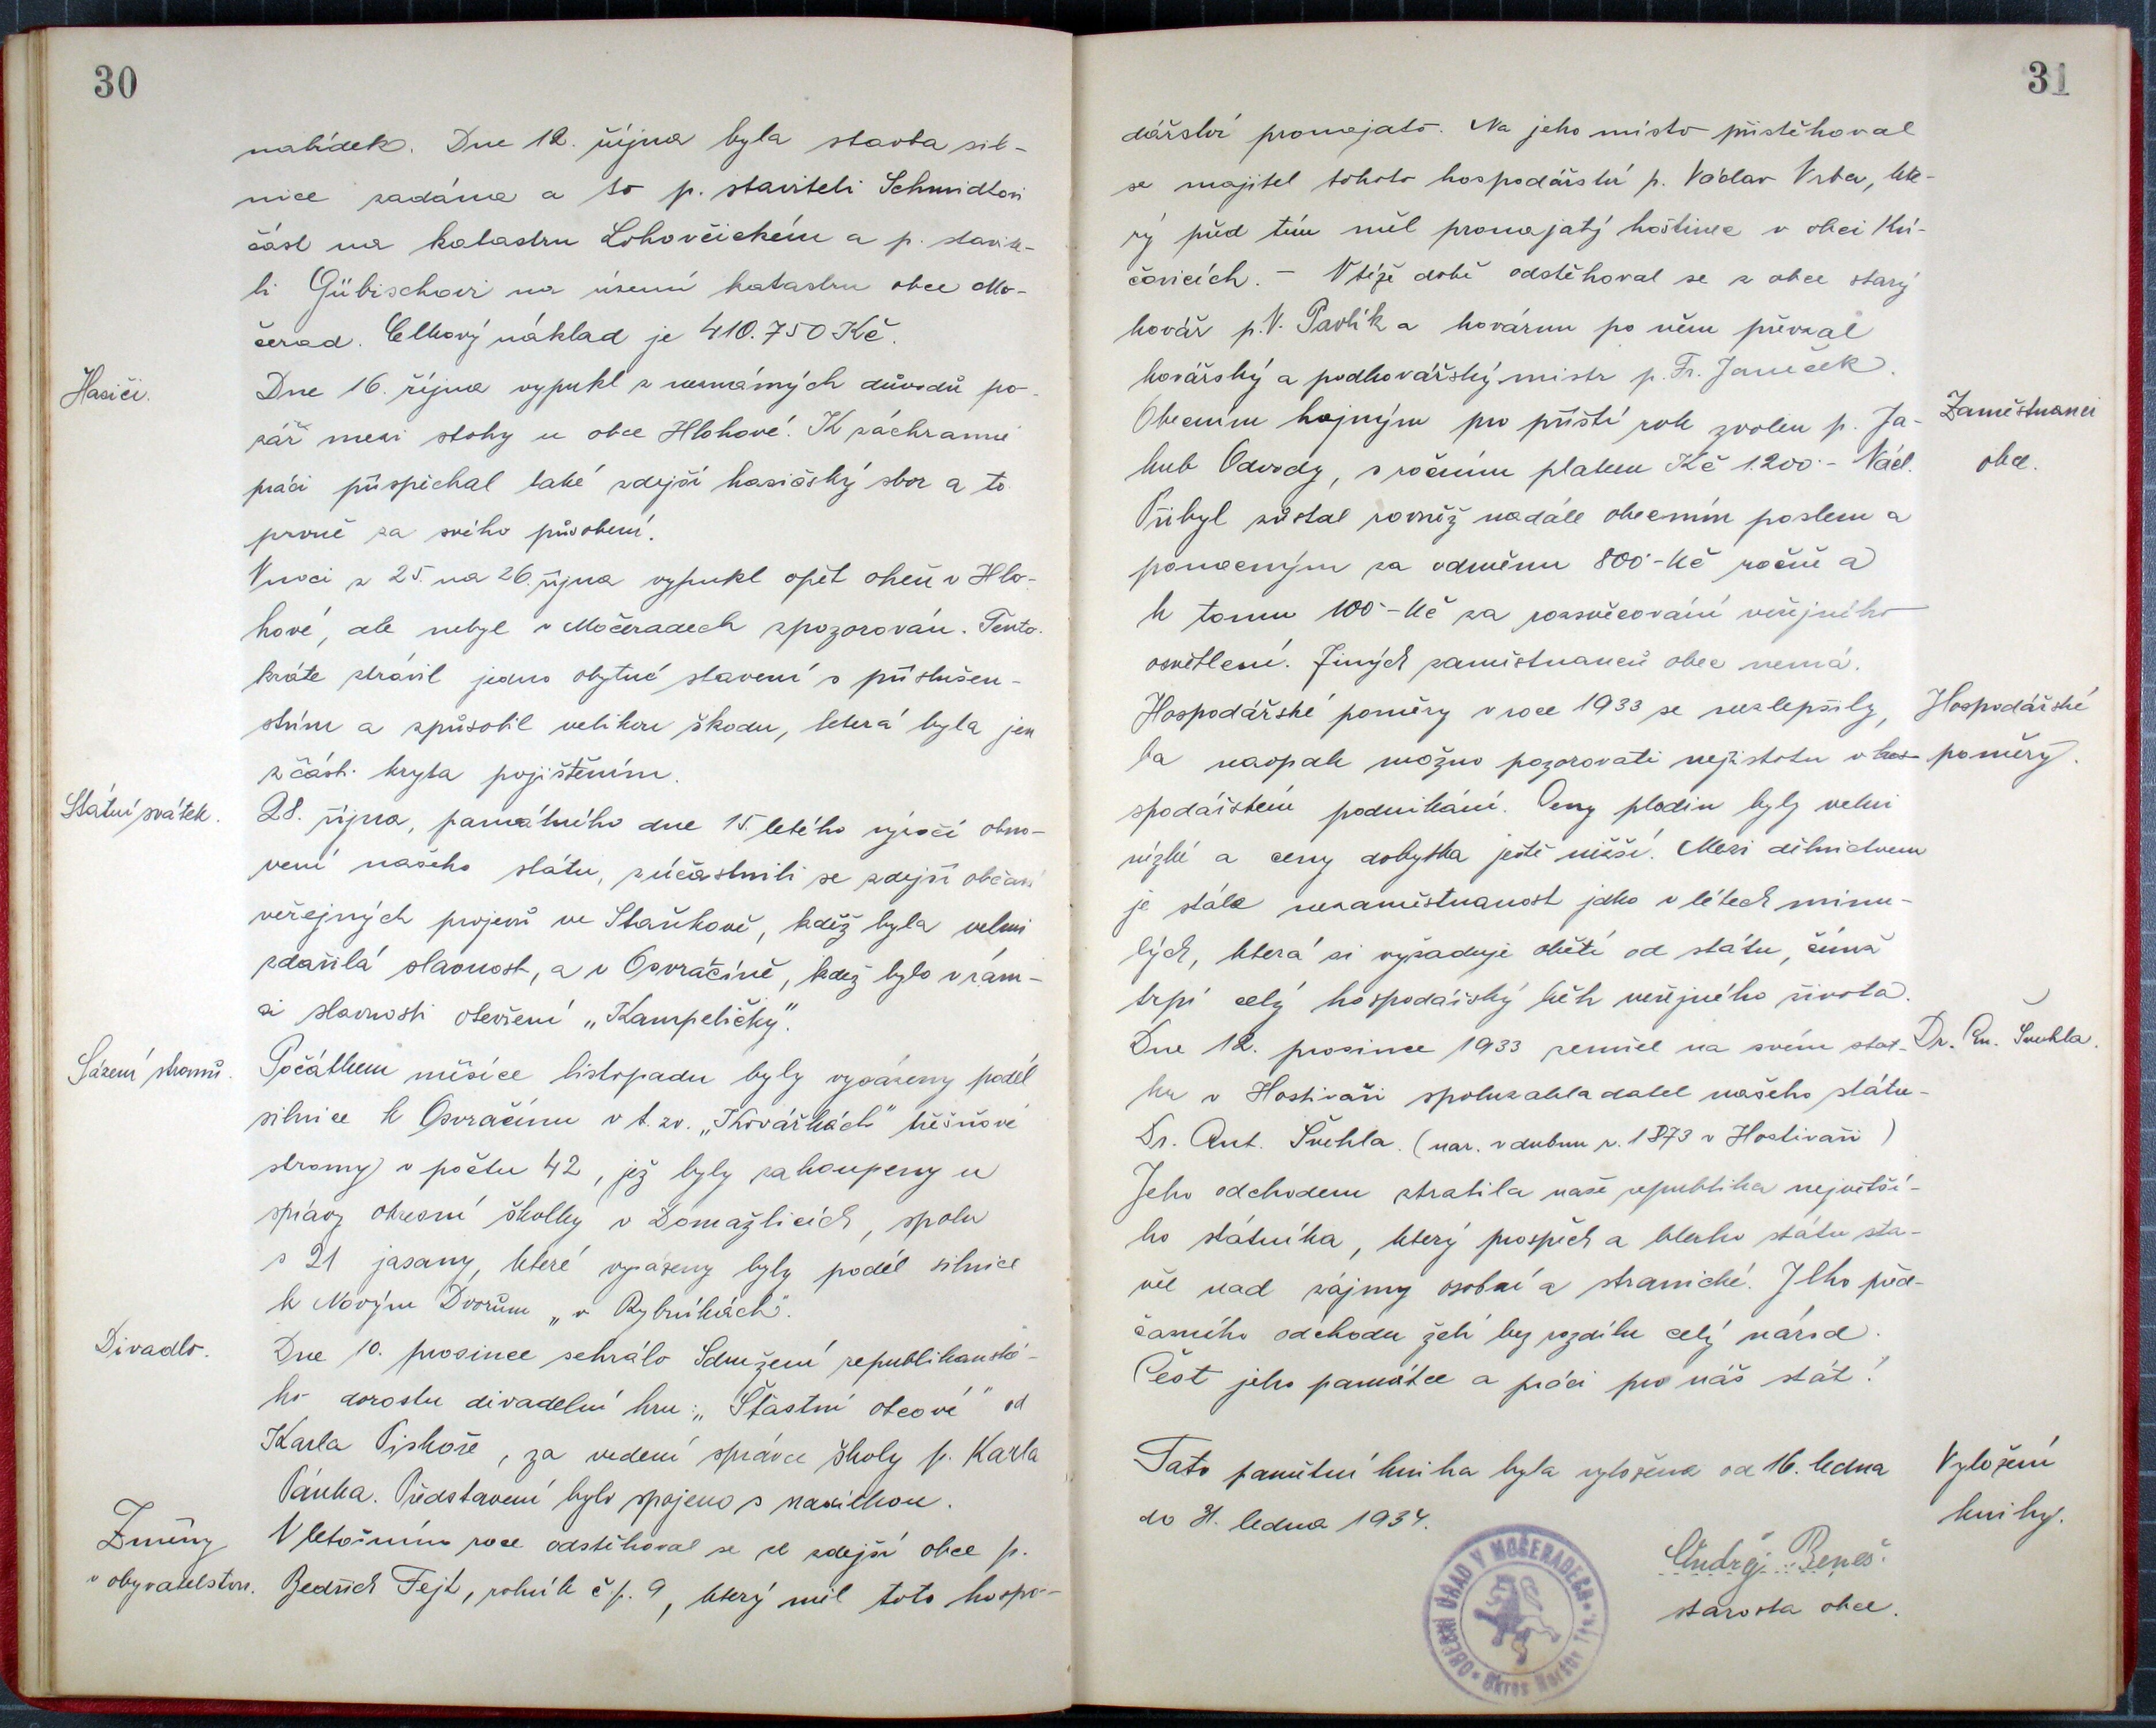 30
nabídek. Dne 12. října byla stavba sil-
nice zadána a to p. staviteli Schmidtovi
část na katastru Lohovčickém a p. stavite-
li Gübischovi na území katastru obce Mo-
čerad. Celkový náklad je 410.750 Kč.
Hasiči.
Dne 16. října vypukl z neznámých důvodů po-
žár mezi stohy u obce Hlohové. K záchranné
práci přispíchal také zdejší hasičský sbor a to
prvně za svého působení.
V noci z 25. na 26. října vypukl opět oheň v Hlo-
hové, ale nebyl v Močeradech zpozorován. Tento-
kráte strávil jedno obytné stavení s příslušen-
stvím a způsobil velikou škodu, která byla jen
z části kryta pojištěním.
Státní svátek.
28. října, památného dne 15 letého výročí obno-
vení našeho státu, zúčastnili se zdejší občané
veřejných projevů ve Staňkově, kděž byla velmi
zdařilá slavnost, a v Osvračíně, kdež bylo v rám-
ci slavnosti otevření „Kampeličky".
Sázení stromů.
Počátkem měsíce listopadu byly vysázeny podél
silnice k Osvračínu v t. zv. „Kovářkách" třešňové
stromy v počtu 42, jež byly zakoupeny u
správy okresní školky v Domažlicích, spolu
s 21 jasany, které vysázeny byly podél silnice
k Novým Dvorům „v Rybníkách".
Divadlo.
Dne 10. prosince sehrálo Sdružení republikanské-
ho dorostu divadelní hru: „Šťastní otcové" od
Karla Piskoře, za vedení správce školy p. Karla
Pánka. Představení bylo spojeno s
Změny
v obyvatelstvu.
V letošním roce odstěhoval se ze zdejší obce p.
Bedřich Fejt, rolník č.p. 9, který měl toto hospo-
31
dářství pronajato. Na jeho místo přistěhoval
se majitel tohoto hospodářství p. Václav Vrba, kte-
rý před tím měl pronajatý hostinec v obci Kři-
čovicích. – V téže době odstěhoval se z obce starý
kovář p. V. Pavlík a kovárnu po něm převzal
kovářský a podkovářský mistr p. Fr. Janeček.
Zaměstnanci
obce.
Obecním hajným pro příští rok zvolen p. Ja-
kub Odvody, s ročním platem Kč 1.200.- Václ.
Přibyl zůstal rovněž nadále obecním poslem a
ponocným za odměnu 800.- Kč ročně a
k tomu 100.- Kč za rozsvěcování veřejného
osvětlení. Jiných zaměstnanců obec nemá.
Hospodářské
poměry.
Hospodářské poměry v roce 1933 se nezlepšily,
ba naopak možno pozorovati nejistotu v hos-
spodářstém podnikání. Ceny plodin byly velmi
nízké a ceny dobytka ještě nižší. Mezi dělnictvem
je stále nezaměstnanost jako v létech minu-
lých, která si vyžaduje obětí od státu, čímž
trpí celý hospodářský běh veřejného života.
Dr. An. Švehla.
Dne 12. prosince 1933 zemřel na svém stat-
ku v Hostivaři spoluzakladatel našeho státu-
Dr. Ant. Švehla. (nar. v dubnu r. 1873 v Hostivaři)
Jeho odchodem ztratila naše republika největší-
ho státníka, který prospěch a blaho státu sta-
věl nad zájmy osobní a stranické. Jeho před-
časného odchodu želí bez rozdílu celý národ.
Čest jeho památce a práci pro náš stát!
Vyložení
knihy.
Tato pamětní kniha byla vyložena od 16. ledna
do 31. ledna 1934.
Ondřej Beneš.
starosta obce.
OBECNÍ ÚŘAD V MOČERADECH
Okres Horšův Týn